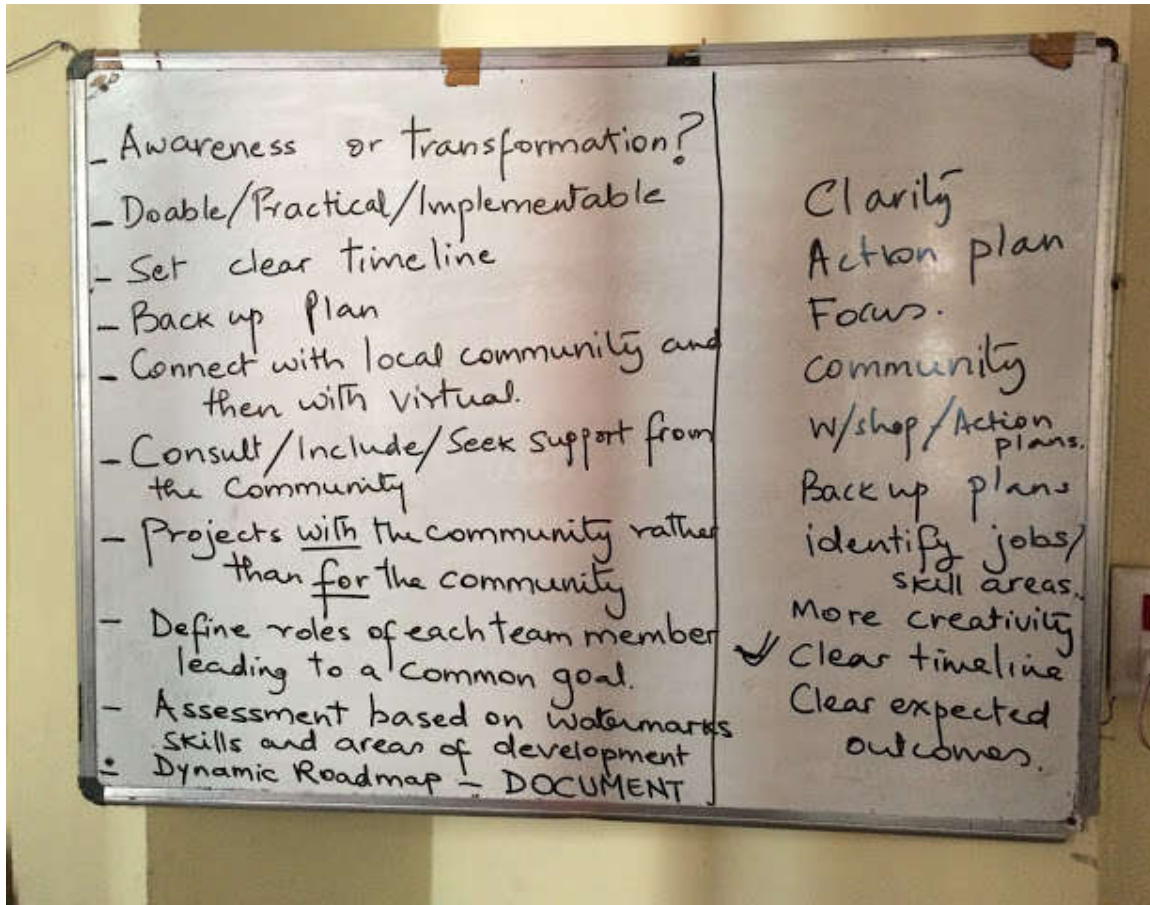 - Awareness or transformation?
- Doable/Practical/Implementable
- Set clear timeline
- Back up Plan
- Connect with local community and
then with virtual.
- Consult/Include/Seek support from
the Community
- Projects with the community rather
than for the community
- Define roles of each team member
leading to a common goal.
- Assessment based on watermarks
skills and areas of development
- Dynamic Roadmap - DOCUMENT
Clarity
Action plan
Focus.
Community
W/shop/Action
plans.
Back up plans
identify jobs/
skill areas.
More creativity
✓ Clear timeline
Clear expected
outcomes.